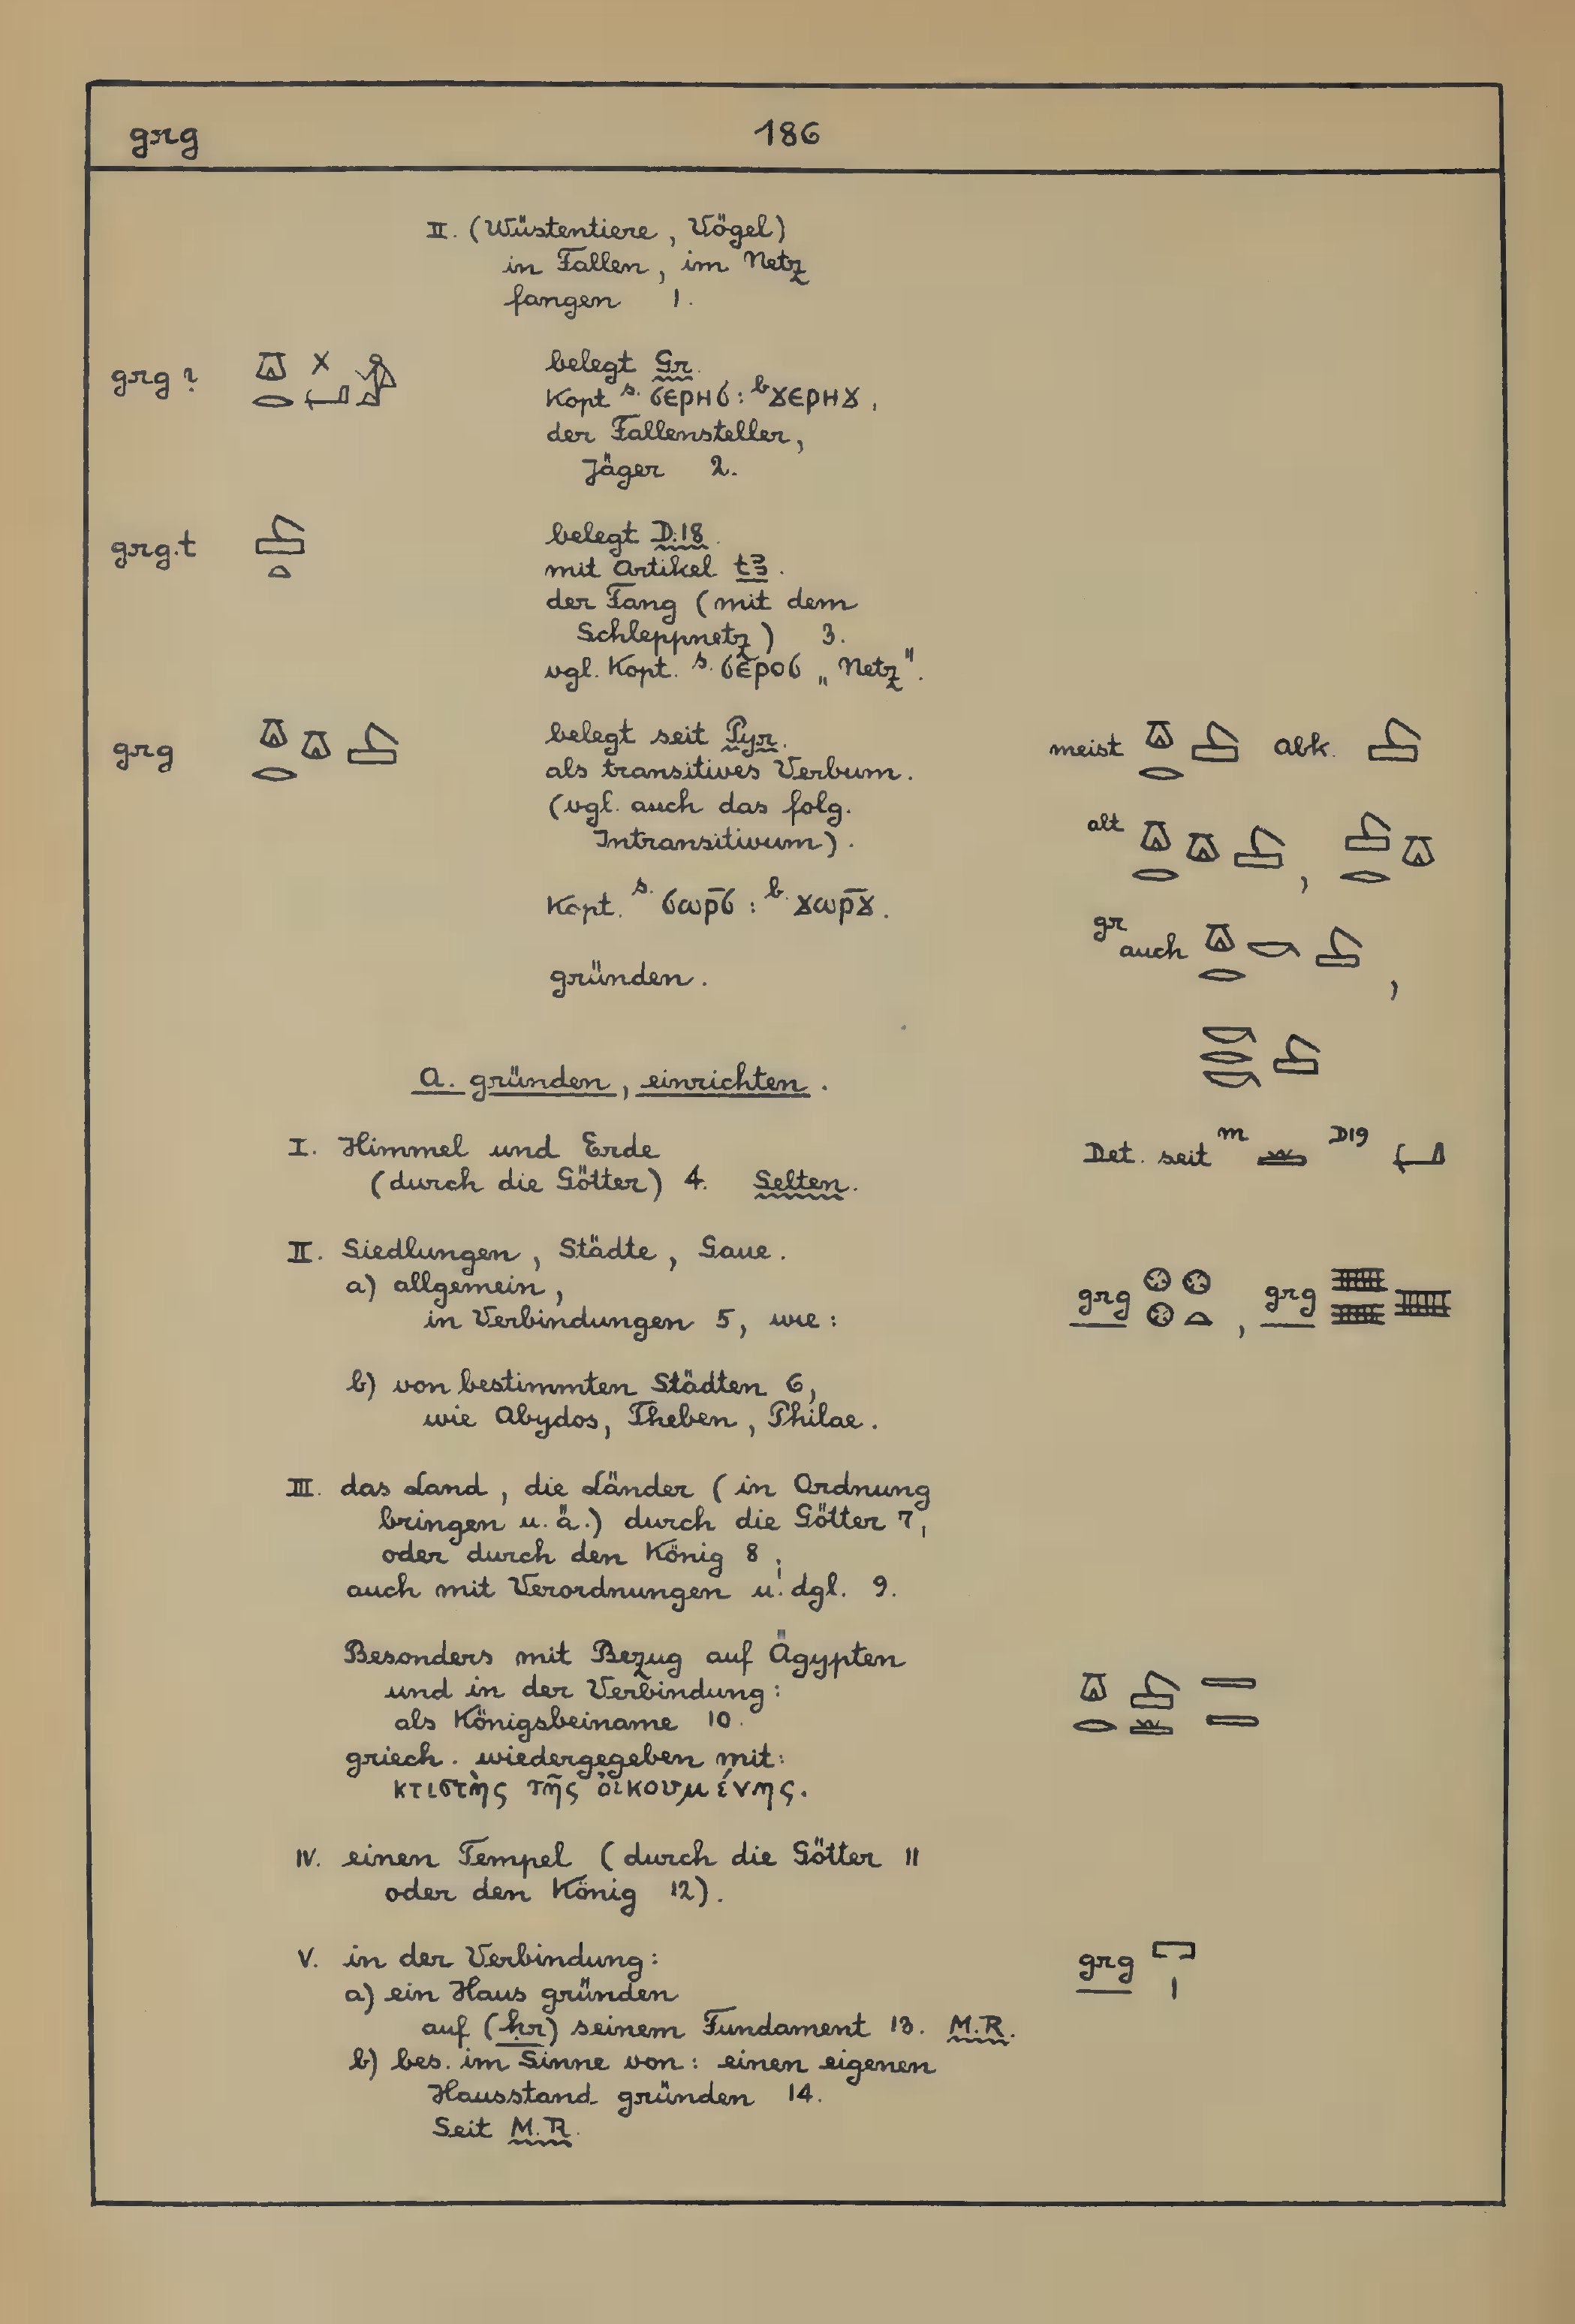 grg
186
II. (Wüstentiere, Vögel)
in Fallen, im Netz
fangen 1.
grg ?
belegt Gr.
Kopt s. ϭⲉⲣⲏϭ : b. ϫⲉⲣⲏϫ,
der Fallensteller,
Jäger 2.
grg.t
belegt D.18.
mit Artikel tꜣ.
der Fang (mit dem
Schleppnetz) 3.
vgl. Kopt. s. ϭⲉⲣⲟϭ „Netz".
grg
belegt seit Pyr.
als transitives Verbum.
(vgl. auch das folg.
Intransitivum).
Kopt. s. ϭⲱⲣ̄ϭ : b. ϫⲱⲣ̄ϫ.
gründen.
meist abk.
alt ,
gr auch ,
A. gründen, einrichten.
I. Himmel und Erde
(durch die Götter) 4. Selten.
Det. seit m D19
II. Siedlungen, Städte, Gaue.
a) allgemein,
in Verbindungen 5, wie:
grg , grg
b) von bestimmten Städten 6,
wie Abydos, Theben, Philae.
III. das Land, die Länder (in Ordnung
bringen u. ä.) durch die Götter 7,
oder durch den König 8;
auch mit Verordnungen u. dgl. 9.
Besonders mit Bezug auf Ägypten
und in der Verbindung:
als Königsbeiname 10.
griech. wiedergegeben mit:
κτιστὴς τῆς οἰκουμένης.
IV. einen Tempel (durch die Götter 11
oder den König 12).
V. in der Verbindung:
grg
a) ein Haus gründen
auf (ḥr) seinem Fundament 13. M.R.
b) bes. im Sinne von: einen eigenen
Hausstand gründen 14.
Seit M.R.